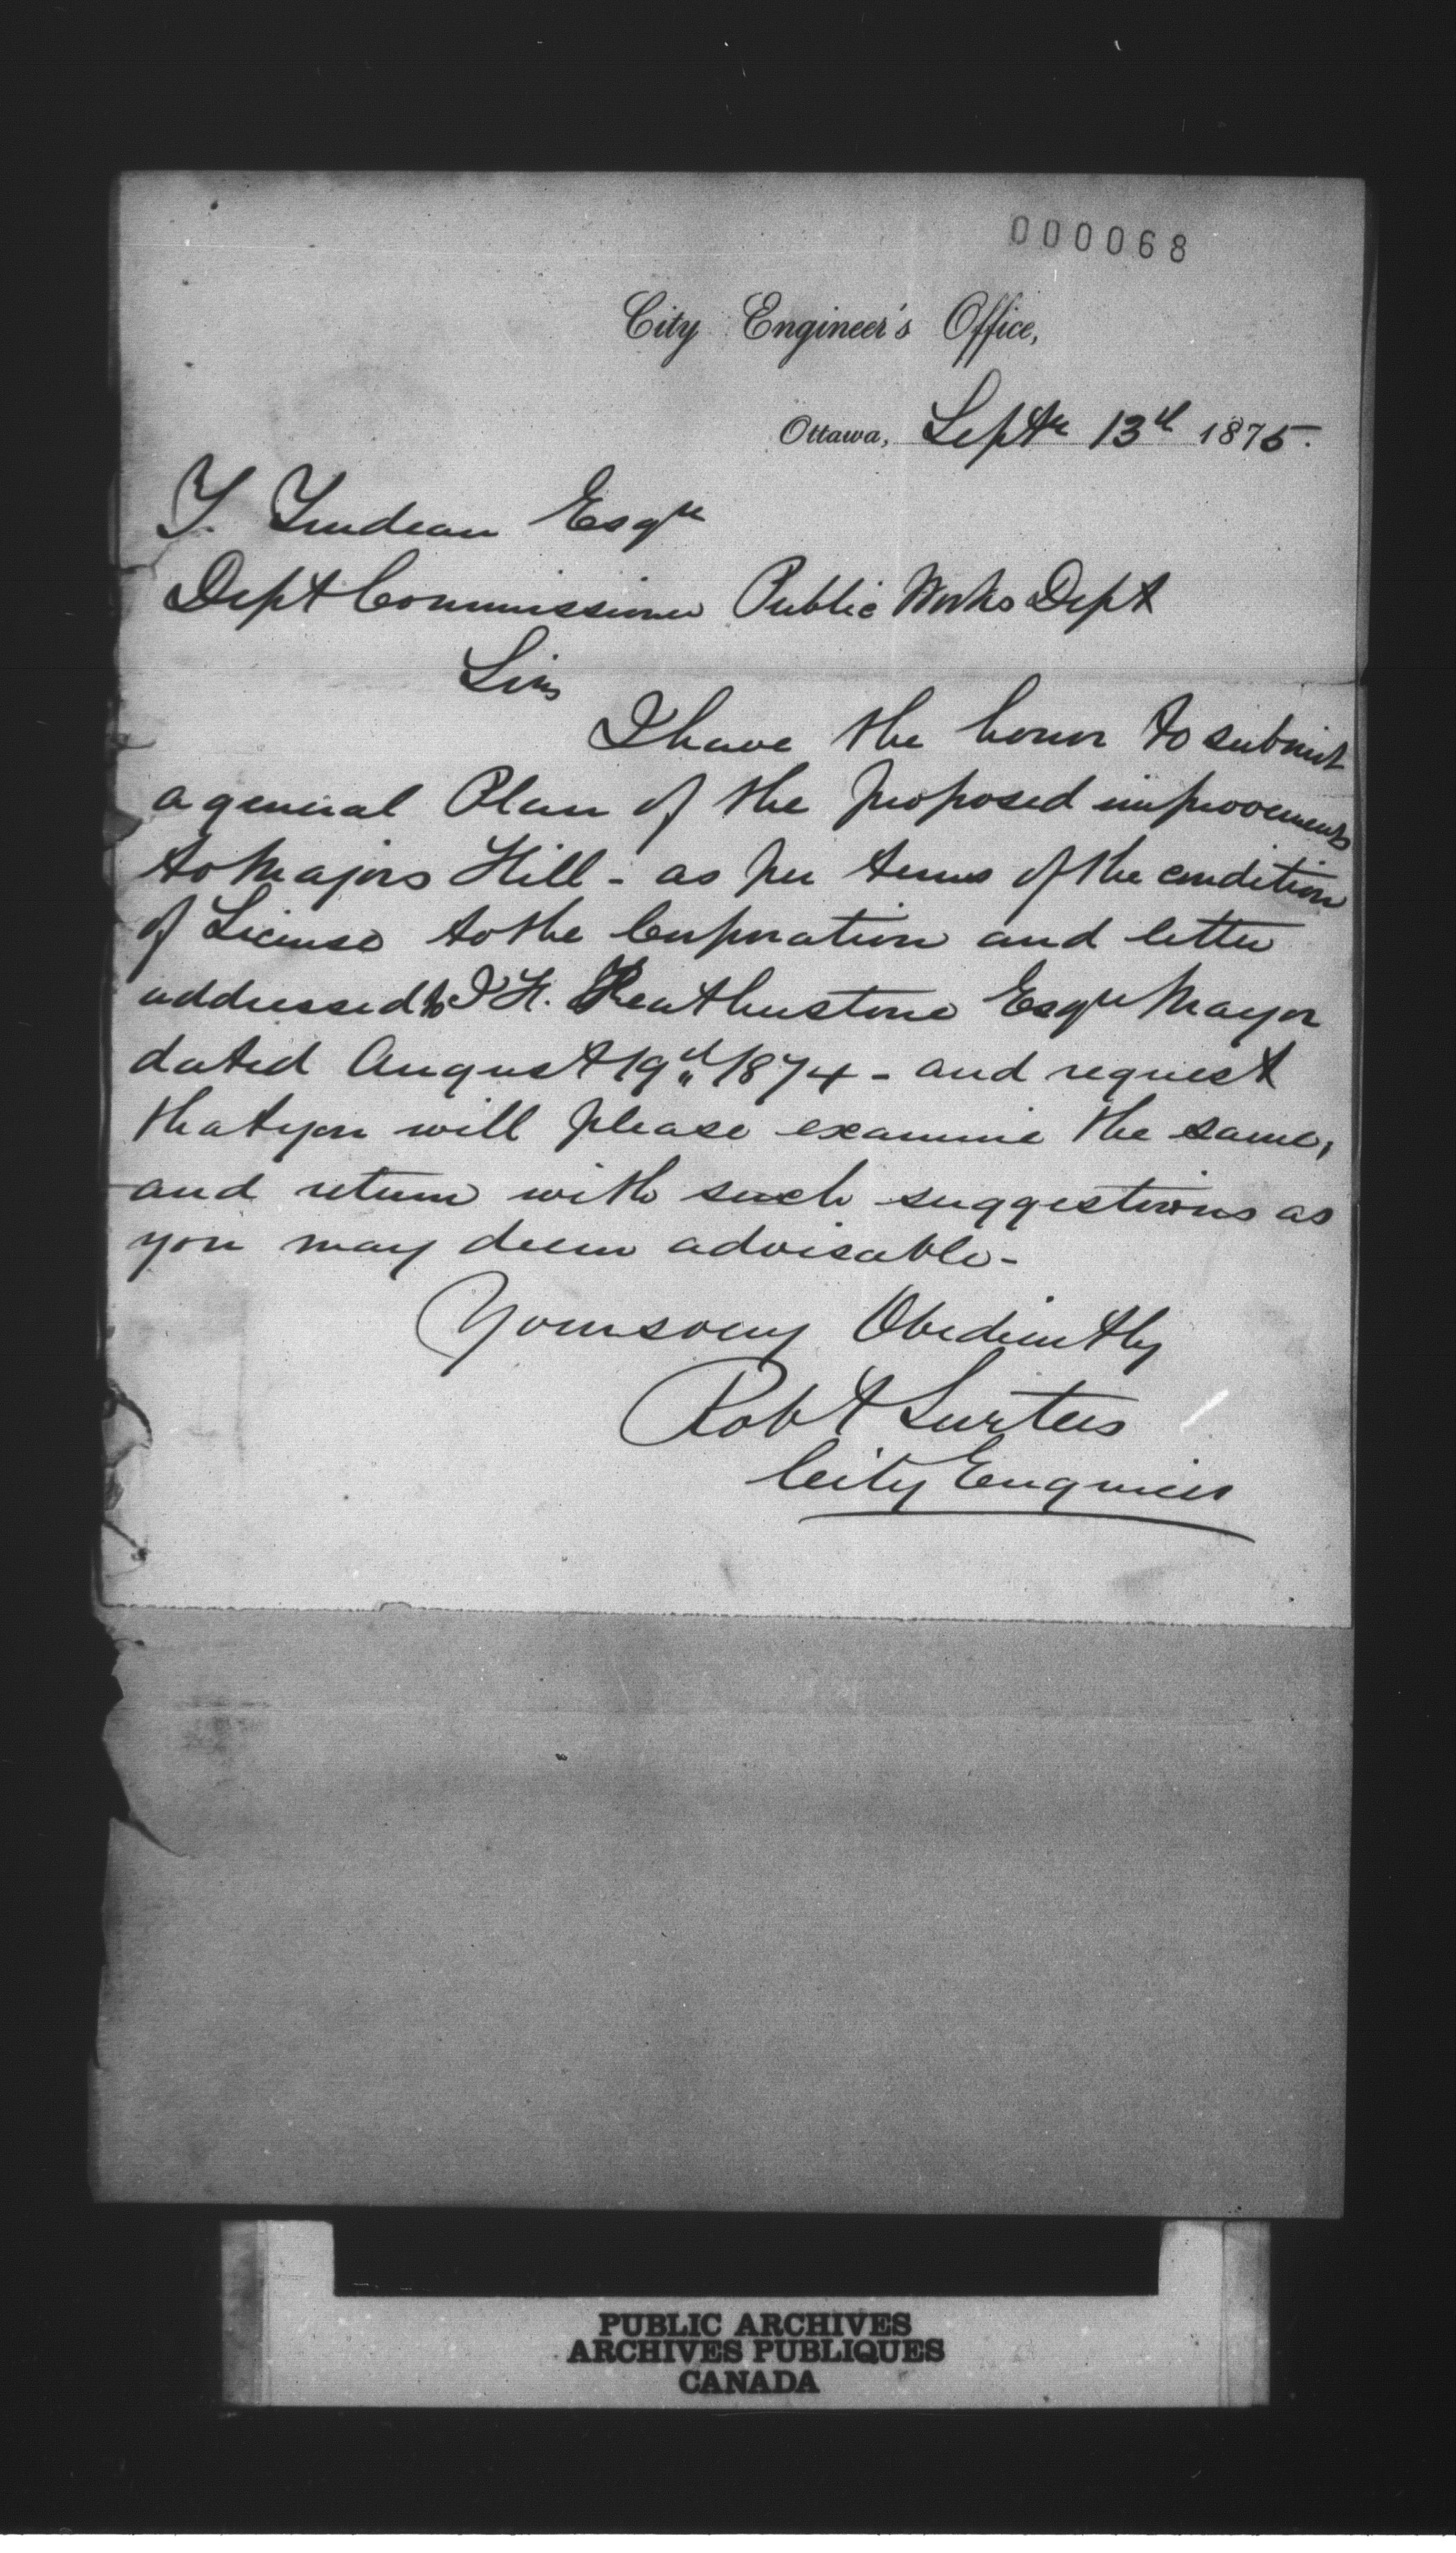 000068
City Engineer's Office,
Ottawa, Septr 13th 1875.
T. Trudeau Esqre
Dept Commissioner Public Works Dept
Sir
I have the honor to submit
a general Plan of the proposed improvements
to Majors Hill - as per terms of the condition
of License to the Corporation and letter
addressed to J H. Featherstone Esqre Mayor
dated August 19th 1874 - and request
that you will please examine the same,
and return with such suggestions as
you may deem advisable -
Yours very Obediently
Robt Surtees
City Engineer
PUBLIC ARCHIVES
ARCHIVES PUBLIQUES
CANADA